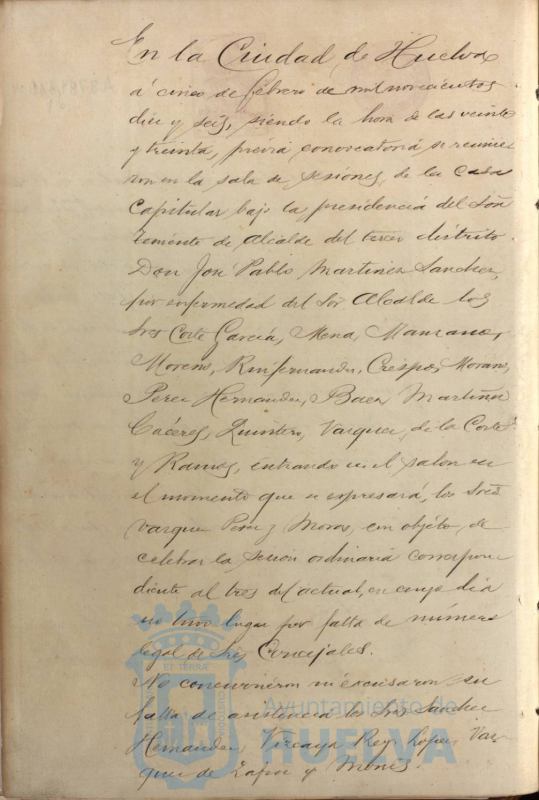 En la Ciudad de Huelva
á cinco de febrero de mil novecientos
diez y seis, siendo la hora de las veinte
y treinta, previa convocatoria se reunie
ron en la sala de sesiones, de la Casa
Capitular bajo la presidencia del Señ
Teniente de Alcalde del tercer distrito
Don José Pablo Martinez Sanchez,
por enfermedad del Sor Alcalde los
Sres Corte García, Mena, Manzano,
Moreno, Crespo, Morano,
Perez Hernandez, Baez Martinez
Cáceres, Quintero, Vazquez, de la Corte
y Ramos, entrando en el salon en
el momento que se expresará, los Sres
Vazquez Perez y Moros, con objeto, de
celebrar la sesión ordinaria correspon
diente al tres del actual, en cuyo dia
no tuvo lugar por falta de número
legal de Sres Concejales.
No concurrieron ni excusaron su
falta de asistencia los Sres Sanchez
Hernandez, Vizcaya Rey Lopez, Vaz-
quez de Zafra y
Ayuntamiento de
HUELVA